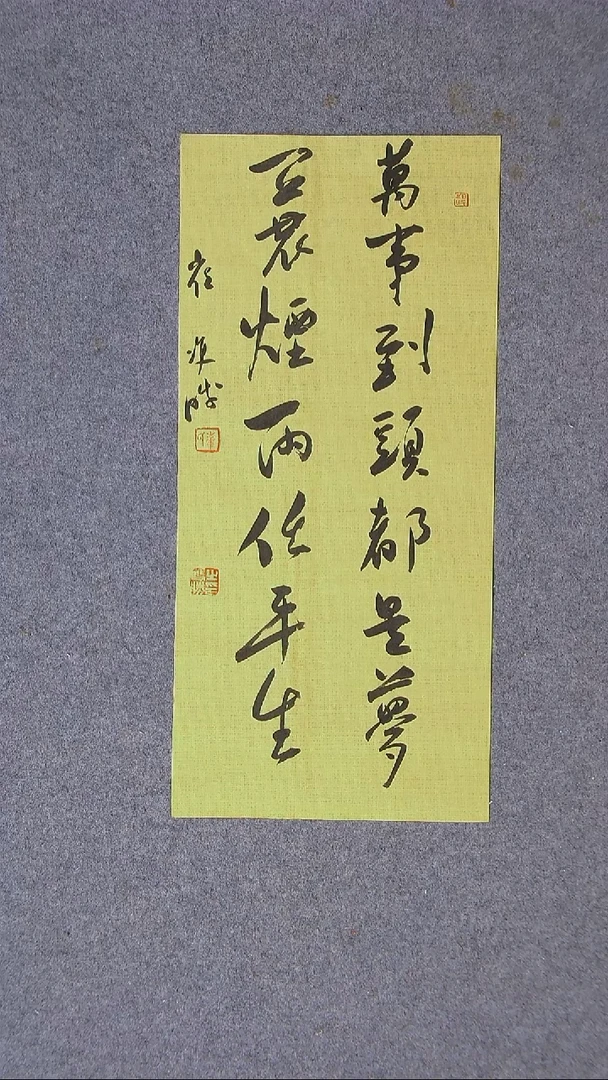 萬事到頭都是夢
一蓑煙雨任平生